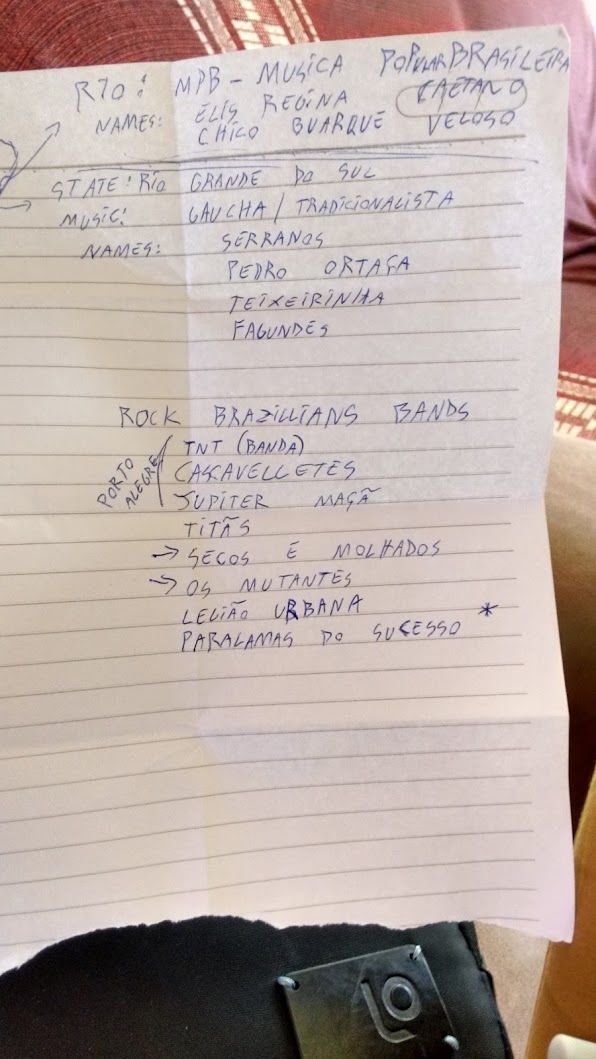 RIO: MPB - MUSICA POPULAR BRASILEIRA
NAMES: ELIS REGINA CAETANO
CHICO BUARQUE VELOSO
STATE: RIO GRANDE DO SUL
MUSIC: GAUCHA / TRADICIONALISTA
NAMES: SERRANOS
PEDRO ORTAÇA
TEIXEIRINHA
FAGUNDES
ROCK BRAZILLIANS BANDS
PORTO ALEGRE
TNT (BANDA)
CASCAVELLETES
JUPITER MAÇÃ
TITÃS
→ SECOS E MOLHADOS
→ OS MUTANTES
LEGIÃO URBANA
PARALAMAS DO SUCESSO *